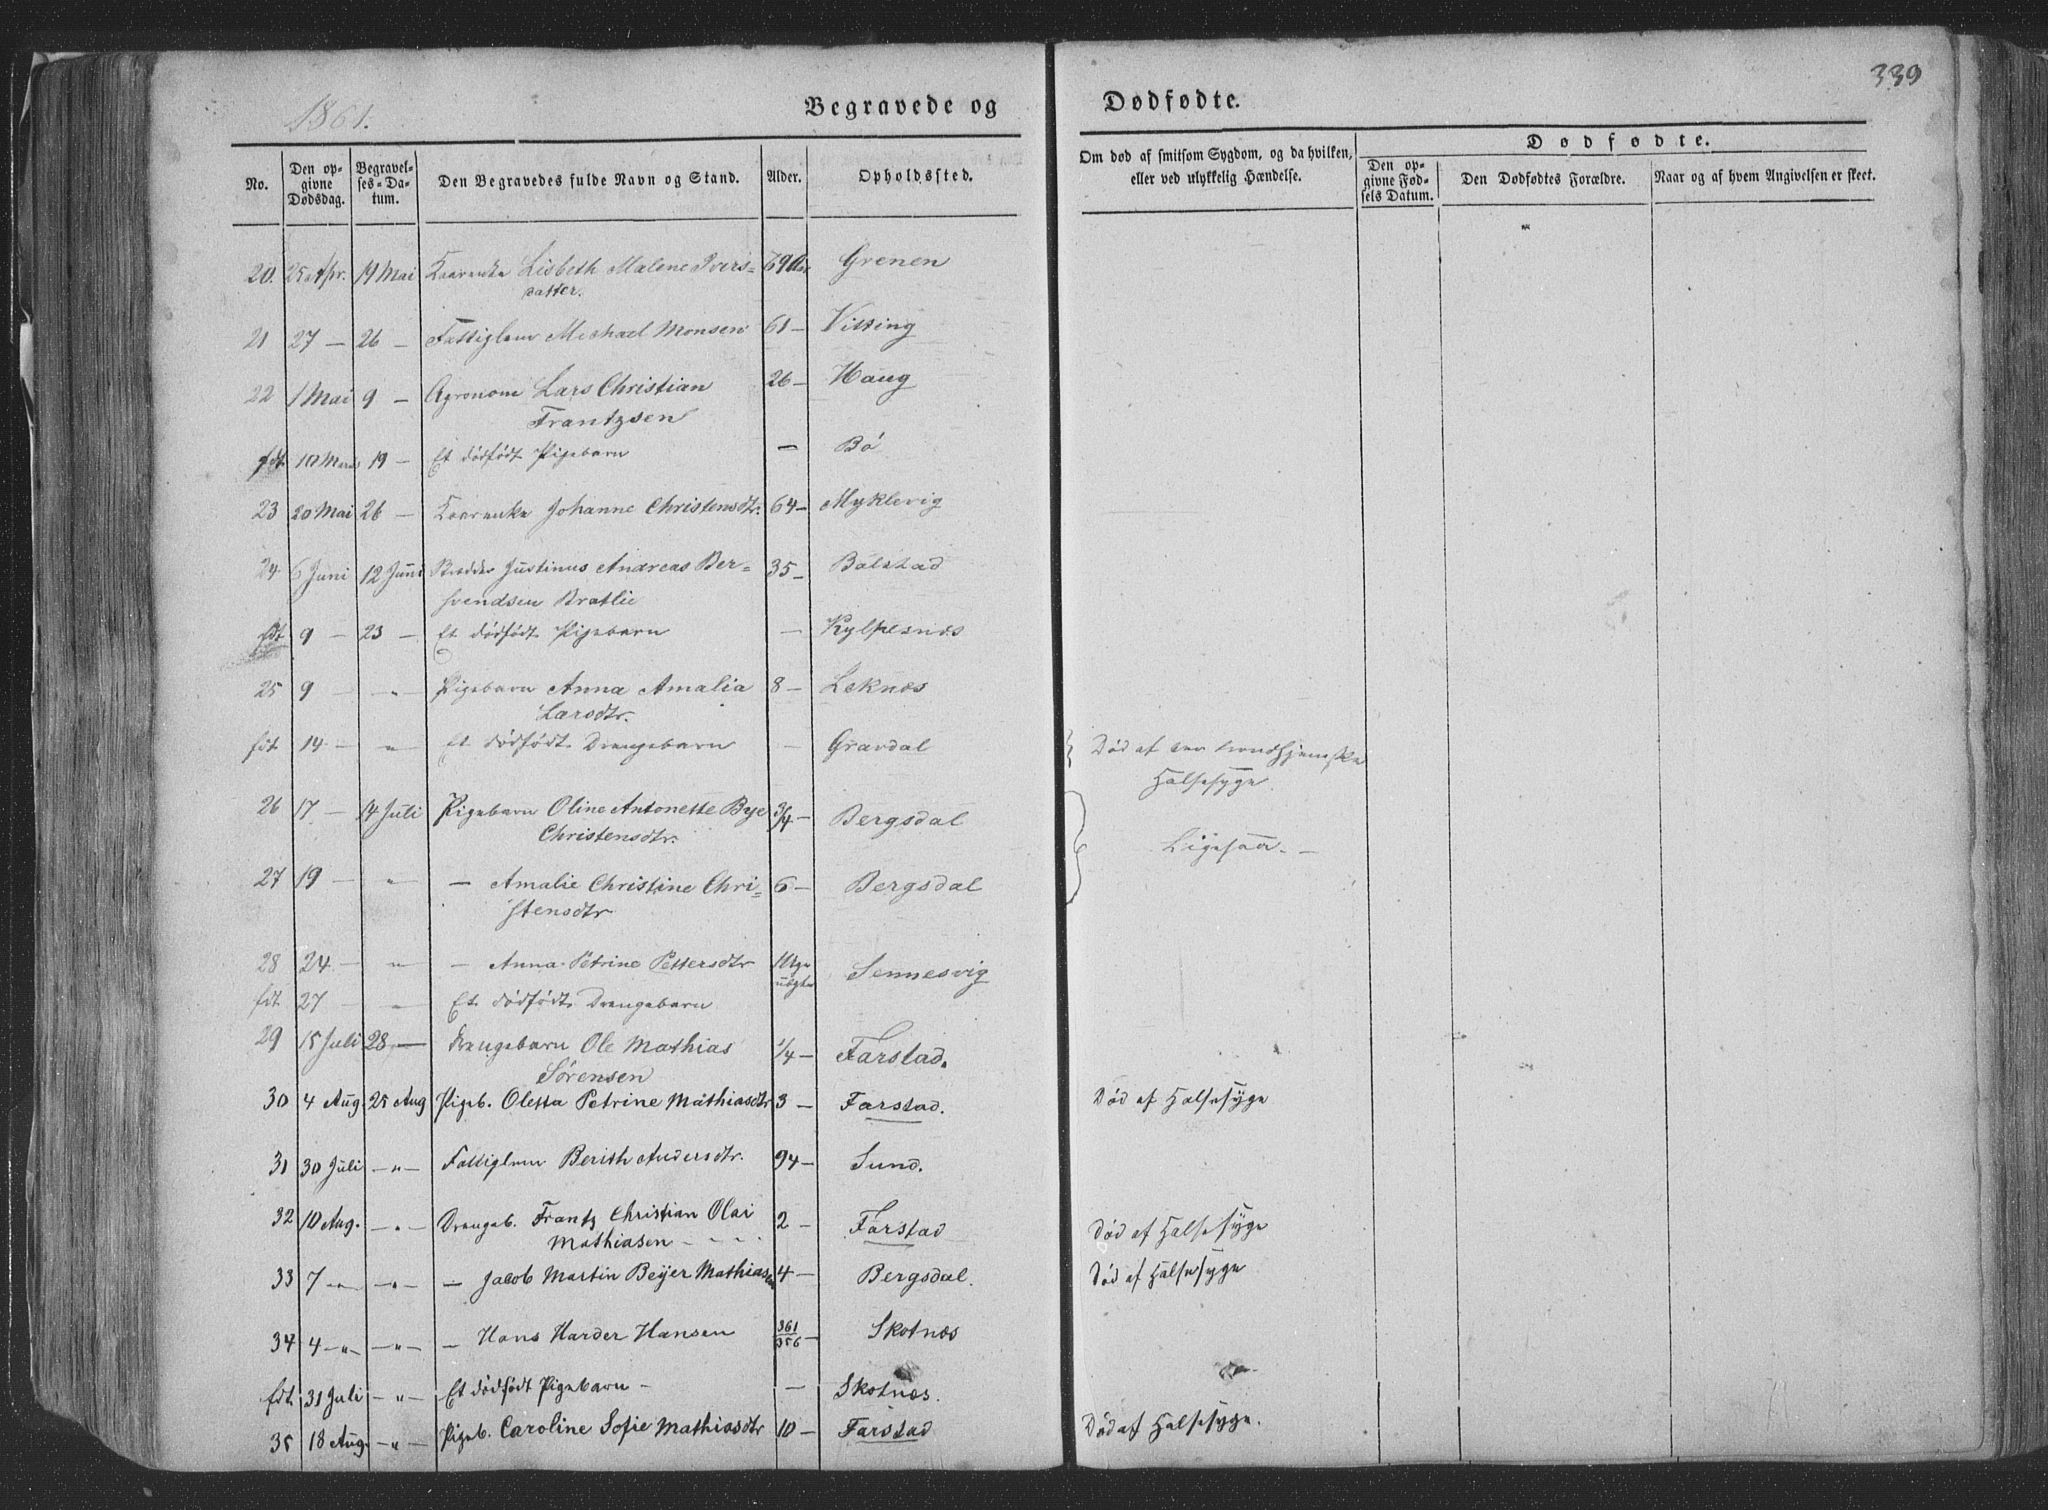 339
1861.
Begravede og Dødfødte.
No.
Den opgivne Dødsdag.
Begravelses-Datum.
Den Begravedes fulde Navn og Stand.
Alder.
Opholdssted.
Om død af smitsom Sygdom, og da hvilken, eller ved ulykkelig Hændelse.
Dødfødte.
Den opgivne Fødsels Datum.
Den Dødfødtes Forældre.
Naar og af hvem Angivelsen er skeet.
20. 25 Apr. 19 Mai Lisbeth Malene Ivers= 69 Aar Grenen
datter.
21 27 — 26 — Fattiglem Michael Monsen 61 — Vitting
22 1 Mai 9 — Agronom Lars Christian 26 — Haug
Frantzsen
fdt 10 19 — Et dödfödt Pigebarn — Bö
23 20 Mai 26 — Johanne Christensdtr. 64 — Myklevig
24 6 Juni 12 Juni Justinus Andreas Ber= 35 — Balstad
svendsen Bratlie
fdt 9 — 23 — Et dödfödt Pigebarn — Kylpesnæs
25 9 — " Pigebarn Anna Amalia 8 — Leknæs
Larsdtr.
fdt 14 — " Et dödfödt Drengebarn — Gravdal
Död af den trondhjemske
Halsesyge.
26 17 — 14 Juli Pigebarn Oline Antonette Bye 3/4 Bergsdal
Christensdtr.
Ligesaa. —
27 19 — " — Amalie Christine Chri= 6 — Bergsdal
stensdtr
28 24 — " — Anna Petrine Pettersdtr Sennesvig
fdt 27 — " Et dödfödt Drengebarn
29 15 Juli 28 — Drengebarn Ole Mathias 1/4 — Farstad.
Sörensen
30 4 Aug. 25 Aug Pigeb. Oletta Petrine Mathiasdtr 3 — Farstad. Död af Halsesyge
31 30 Juli — " — Fattiglem Berith Andersdtr. 94 — Sund.
32 10 Aug. — " — Drengeb. Frantz Christian Olai 2 — Farstad Död af Halsesyge
Mathiasen
33 7 — " — — " — — Jacob Martin Beijer Mathiasen 4 — Bergsdal. Död af Halsesyge
34 4 — " — — " — — Hans Harder Hansen 361/356 — Skotnæs
fdt 31 Juli — " — Et dödfödt Pigebarn — — Skotnæs.
35 18 Aug. — " — Pigeb. Caroline Sofie Mathiasdtr 10 — Farstad Död af Halsesyge.